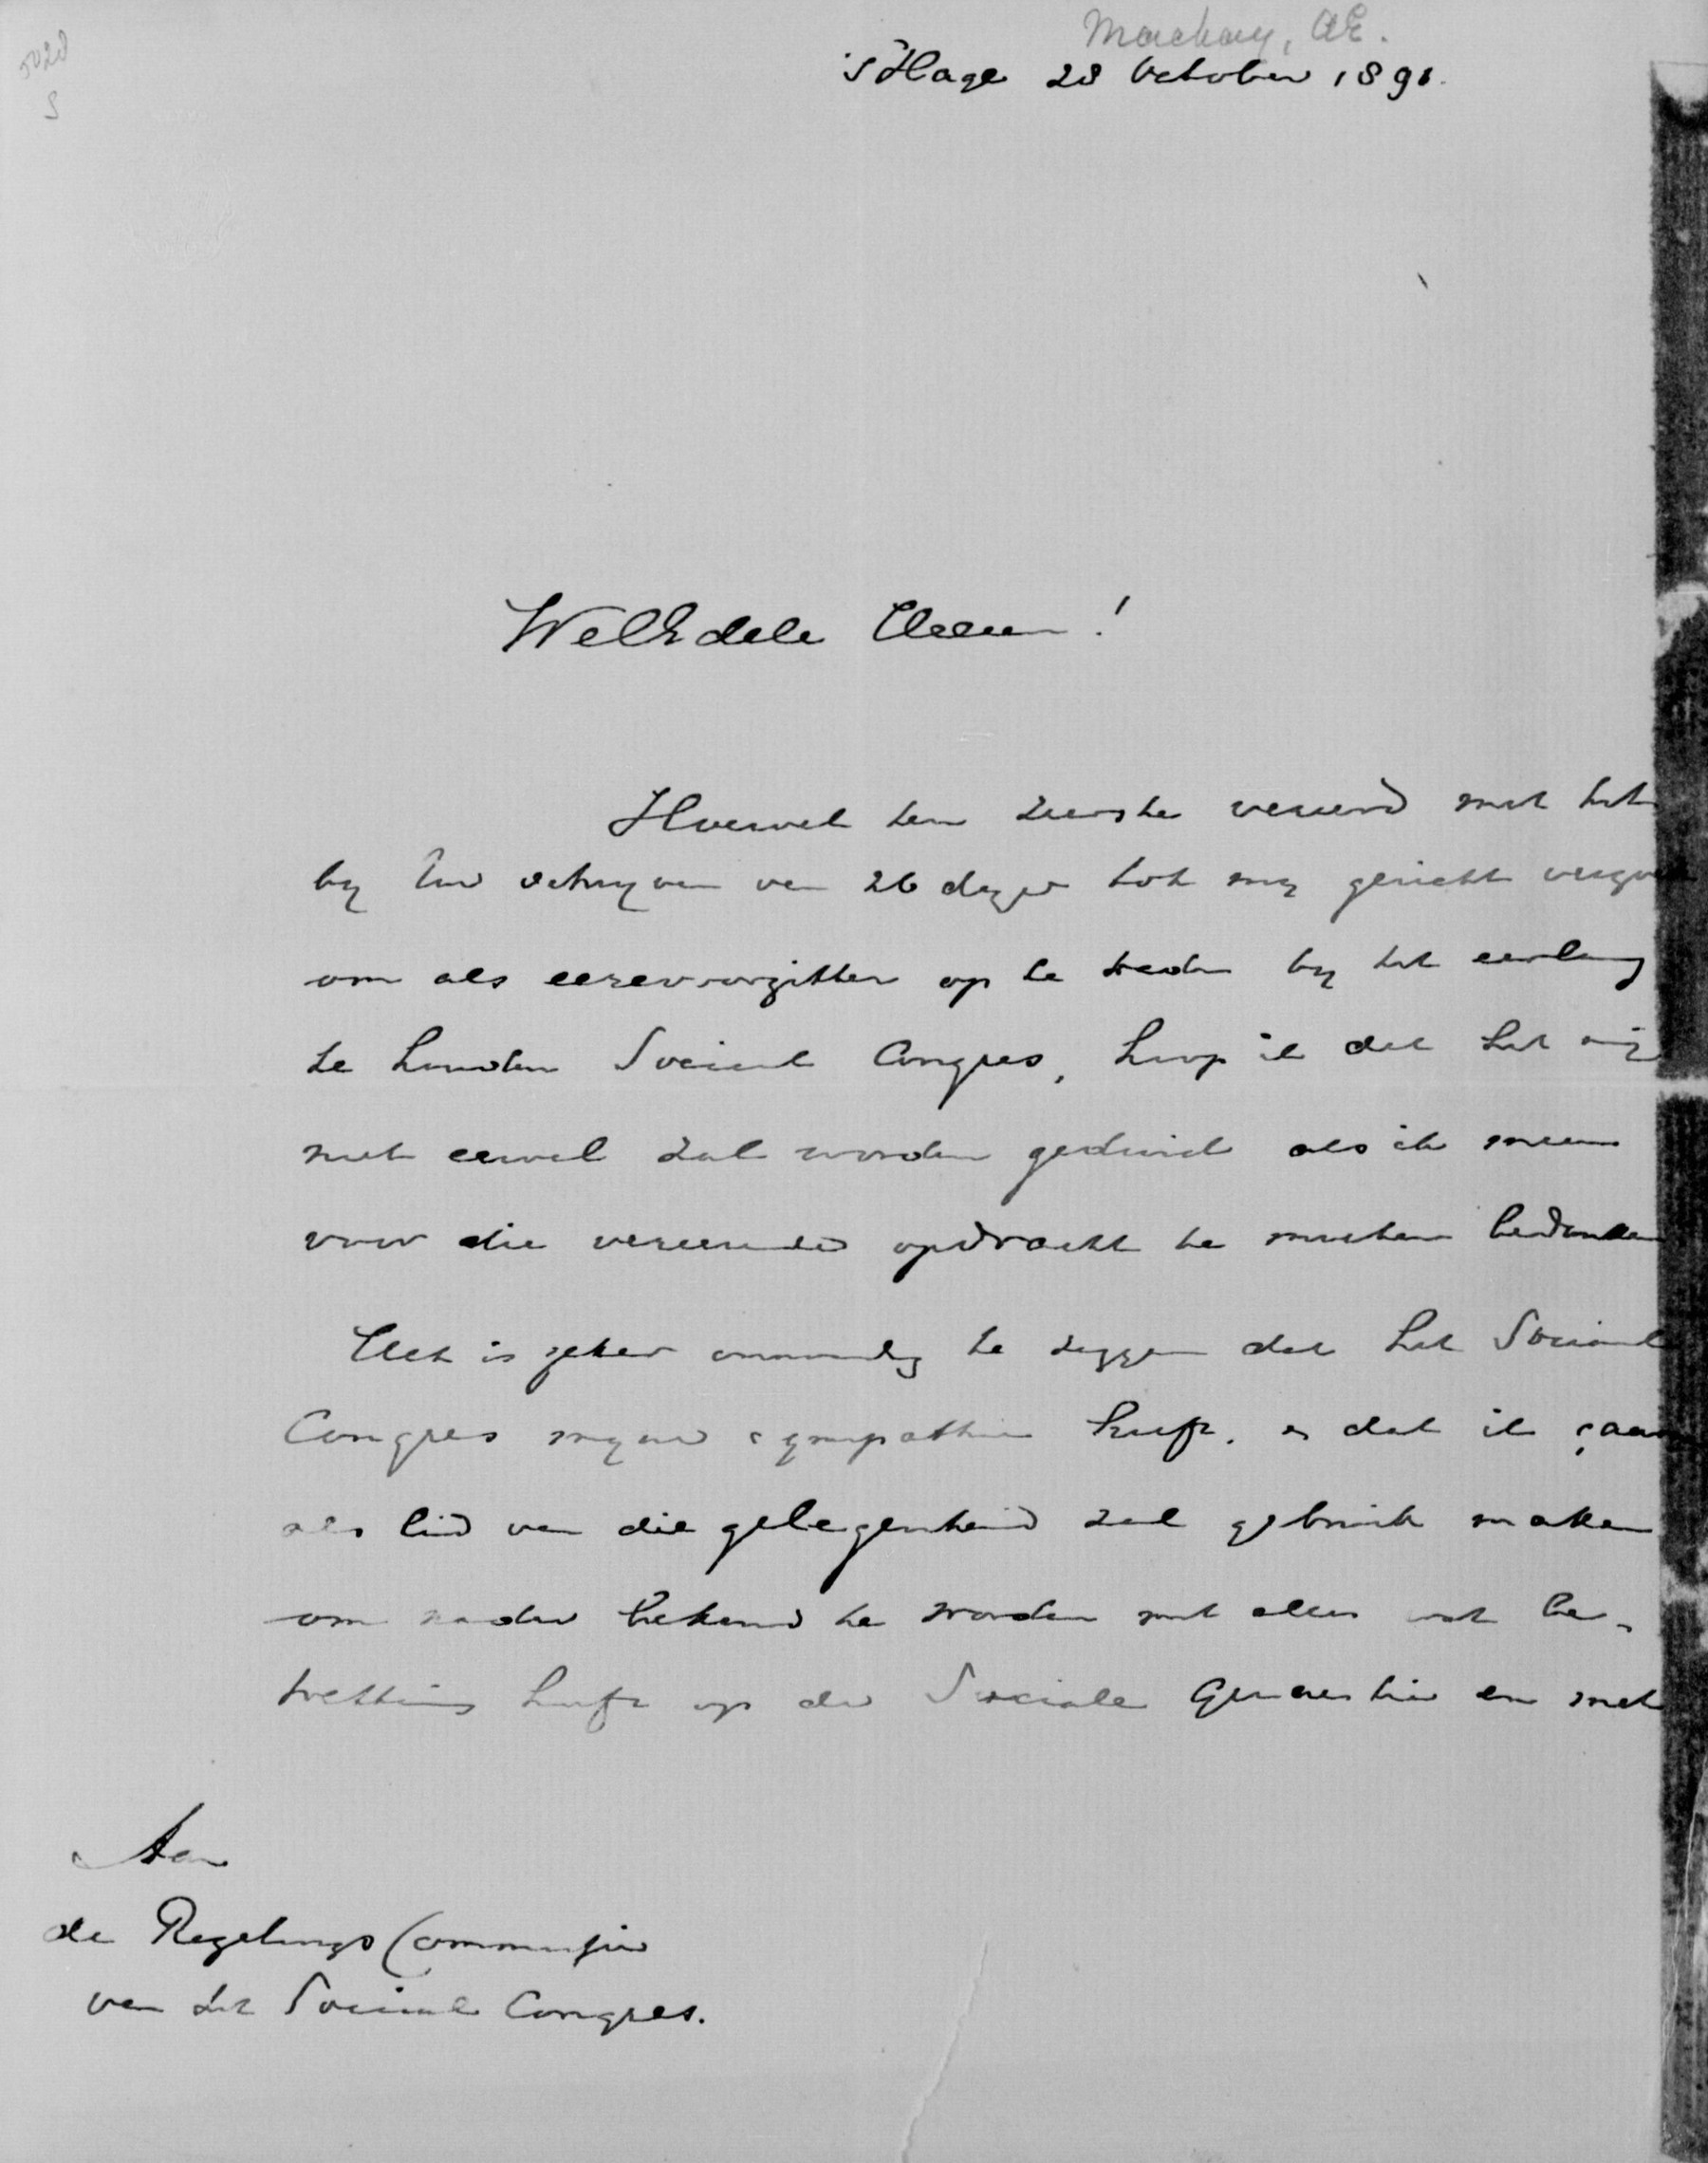 5028
S
Mackay, AE.
'sHage 28 October 1891.
WelEdele Heeren!
Hoewel ten zeerste vereerd met het
by Uw schryven van 26 dezer tot my gericht verzoek
om als eerevoorzitter op te treden by het eerlang
te houden Sociaal Congres, hoop ik dat het mij
niet euvel zal worden geduid als ik meen
voor die vereerende opdracht te moeten bedanken
Het is zeker onnoodig te zeggen dat het Sociaal
Congres myne sympathie heeft. en dat ik gaarne
als lid van die gelegenheid zal gebruik maken
om nader bekend te worden met alles wat be-
trekking heeft op de Sociale Quaestie en met
Aan
de Regelings Commissie
van het Sociaal Congres.